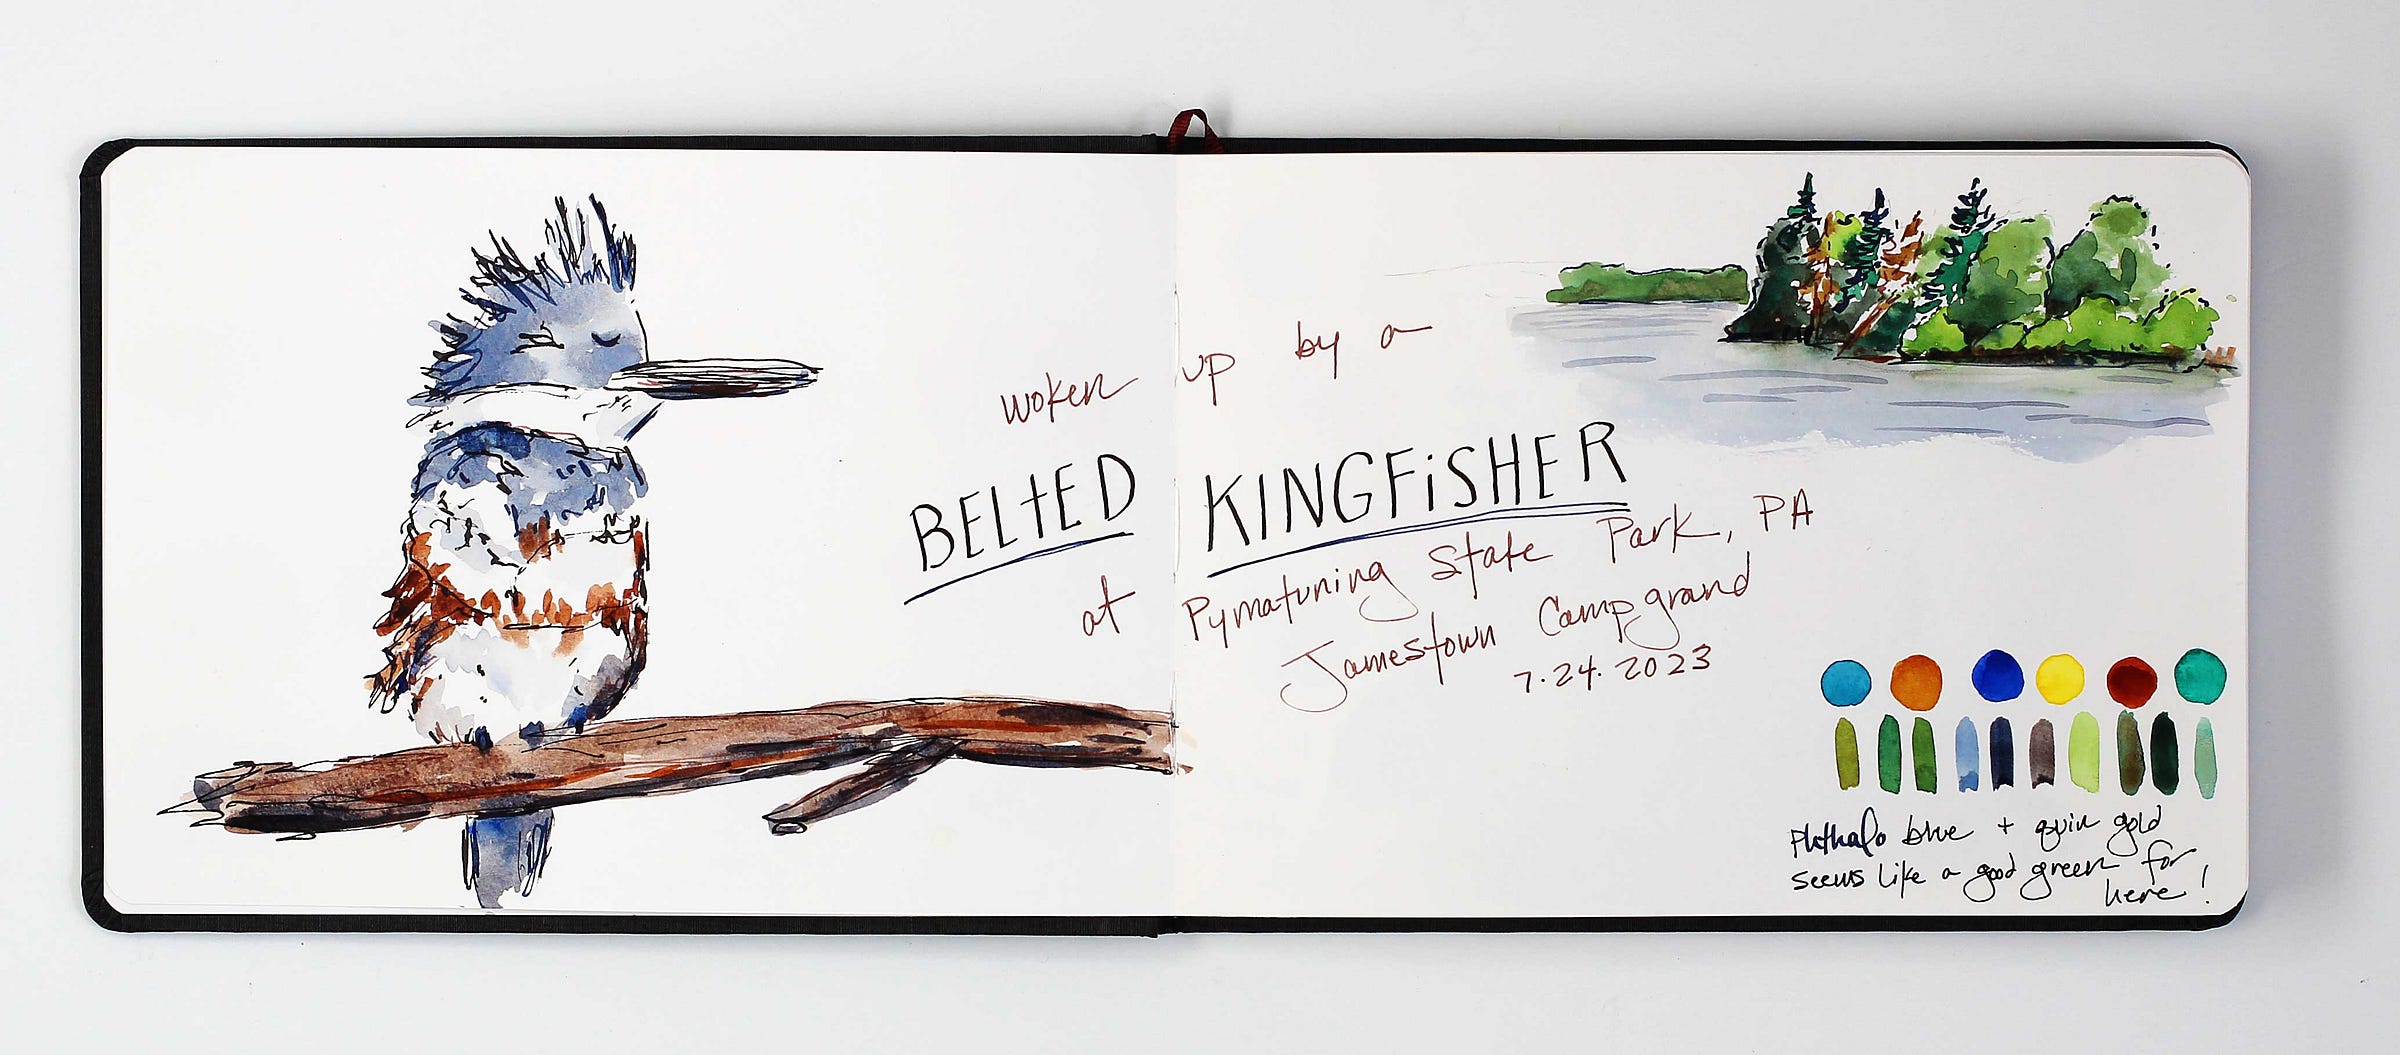 woken up by a
BELTED KINGFiSHER
at Pymatuning State Park, PA
Jamestown Campground
7.24.2023
Phthalo blue + quin gold
seems like a good green for
here!